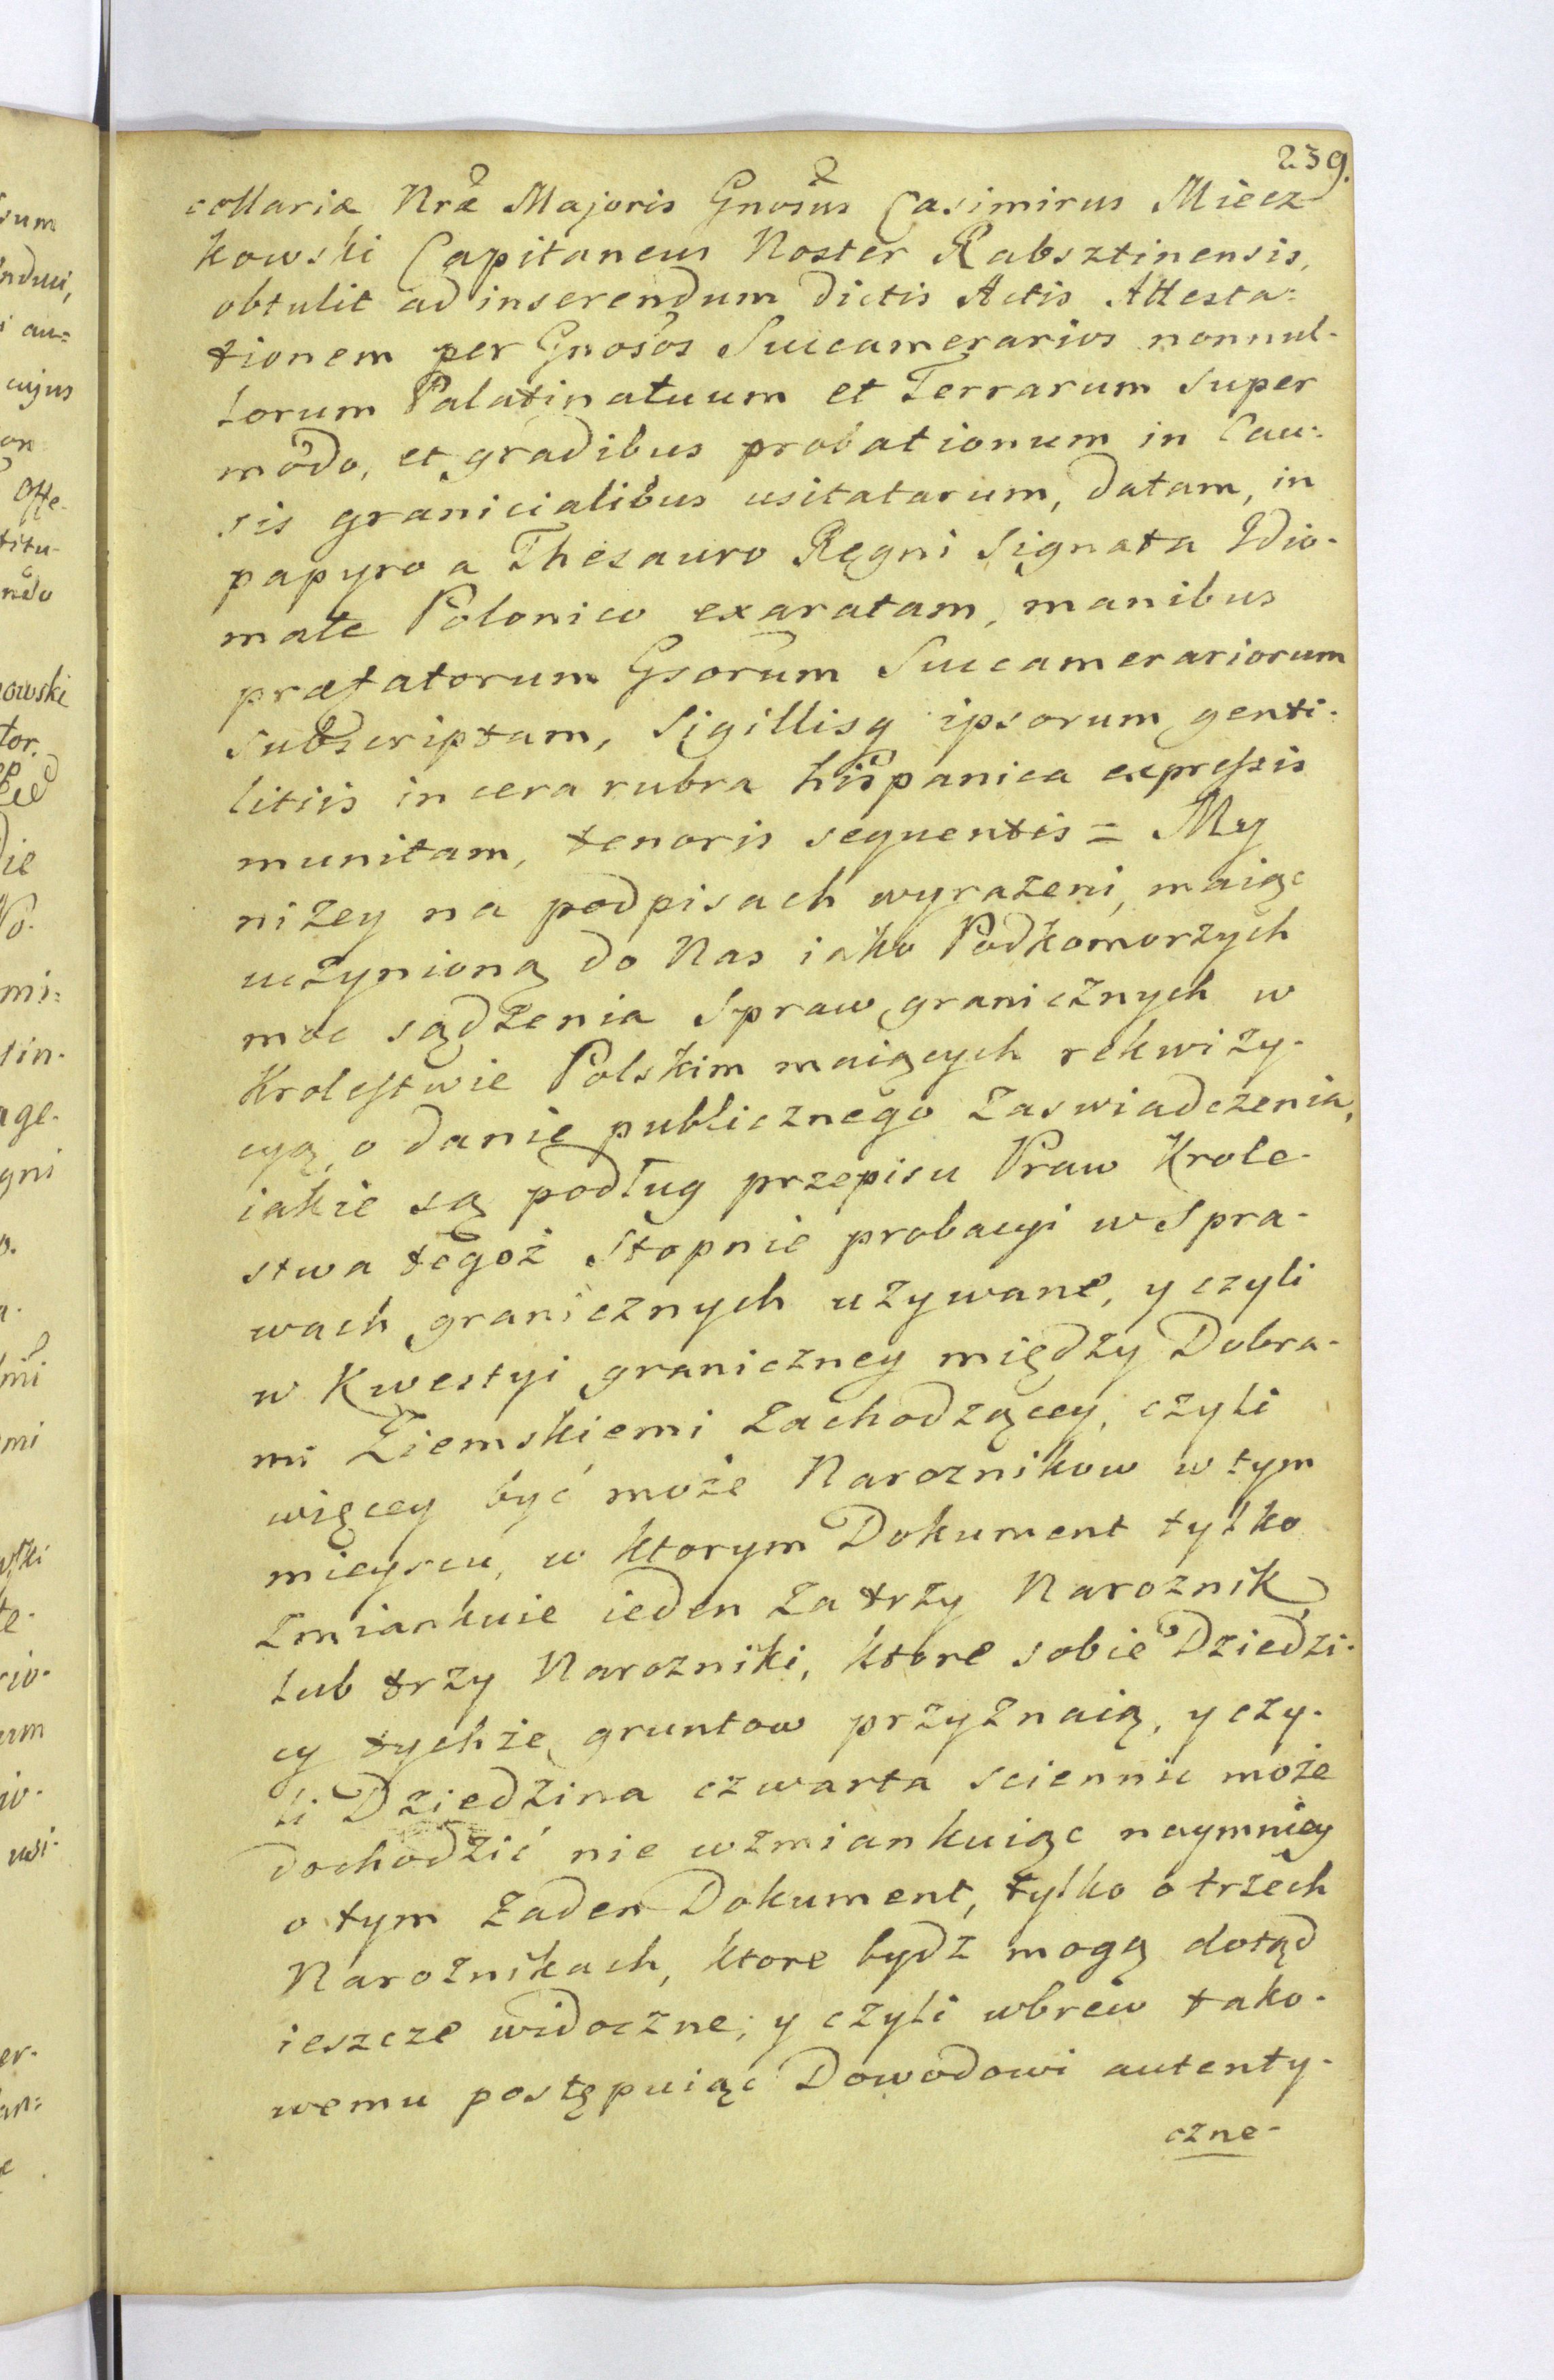 239.
cellariæ Nræ Majoris Gnosus Casimirus Miecz
kowski Capitaneus Noster Rabsztinensis,
obtulit ad inserendum dictis Actis Attesta=
tionem per Gnosos Succamerarios nonnul-
lorum Palatinatuum et Terrarum super
modo, et gradibus probationum in Cau-
sis granicialibus usitatarum, datam, in
papyro a Thesauro Regni signata Idio-
mate Polonico exaratam, manibus
præfatorum Gsorum Succamerariorum
subscriptam, Sigillisq ipsorum genti-
litiis in cera rubra hispanica expressis
munitam, tenoris sequentis = My
niżey na podpisach wyrażeni, maiąc
uczynioną do Nas iako Podkomorzych
moc sądzenia Spraw granicznych w
Krolestwie Polskim maiących rekwizy-
cyą, o danie publicznego Zaswiadczenia,
iakie są podług przepisu Praw Krole-
stwa tegoż Stopnie probacyi w Spra-
wach granicznych używane, y czyli
w Kwestyi graniczney między Dobra-
mi Ziemskiemi Zachodzącey, czyli
więcey być może Naroznikow w tym
mieyscu, w ktorym Dokument tylko
Zmiankuie ieden Za trzy Naroznik
lub trzy Narozniki, ktore sobie Dziedzi-
cy tychże gruntow przyznaią, y czy-
li Dziedzina czwarta sciennie może
dochodzić nie wzmiankuiąc naymniey
o tym Zaden Dokument, tylko o trzech
Naroznikach, ktore bydz mogą dotąd
ieszcze widoczne; y czyli wbrew tako-
wemu postępuiąc Dowodowi autenty-
czne-